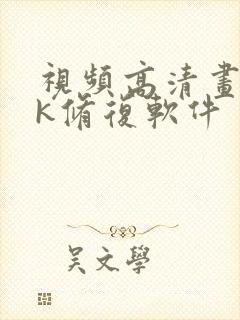 視頻高清畫
K脩復軟件
吴文學